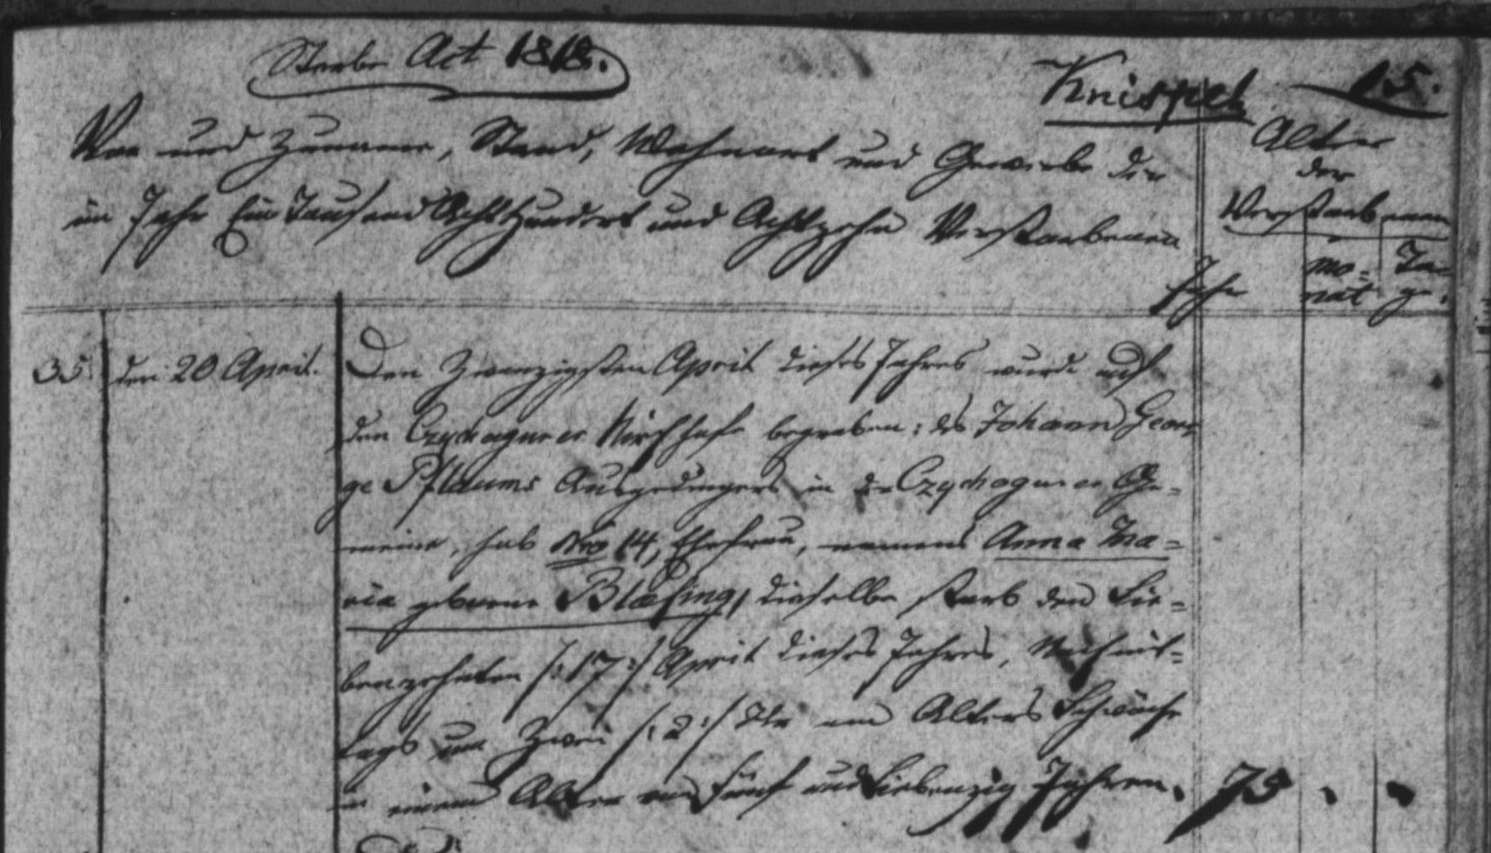 Sterbe Act 1818.
Knispel 15.
Vor und Zuname, Stand, Wohnort und Gewerbe der
im Jahr Ein Tausend Acht Hundert und Achtzehn Verstorbenen
Alter
der
Verstorbenen
Jahr
Mo-
nat
Ta-
ge.
35. den 20 April.
Den Zwanzigsten April dieses Jahres wurde auf
den Kirchhofe begraben: des Johann Geor-
ge Pflaums Ausgedingers in der Ge-
meine, sub Nro 14, Ehefrau, namens Anna Ma-
ria geborene Blæsing, dieselbe starb den Sie-
benzehnten /:17:/ April dieses Jahres, Nachmit-
tags um Zwei /:2:/ Uhr an Alters Schwäche
in einem Alter von Fünf und Siebenzig Jahren.
75 . .